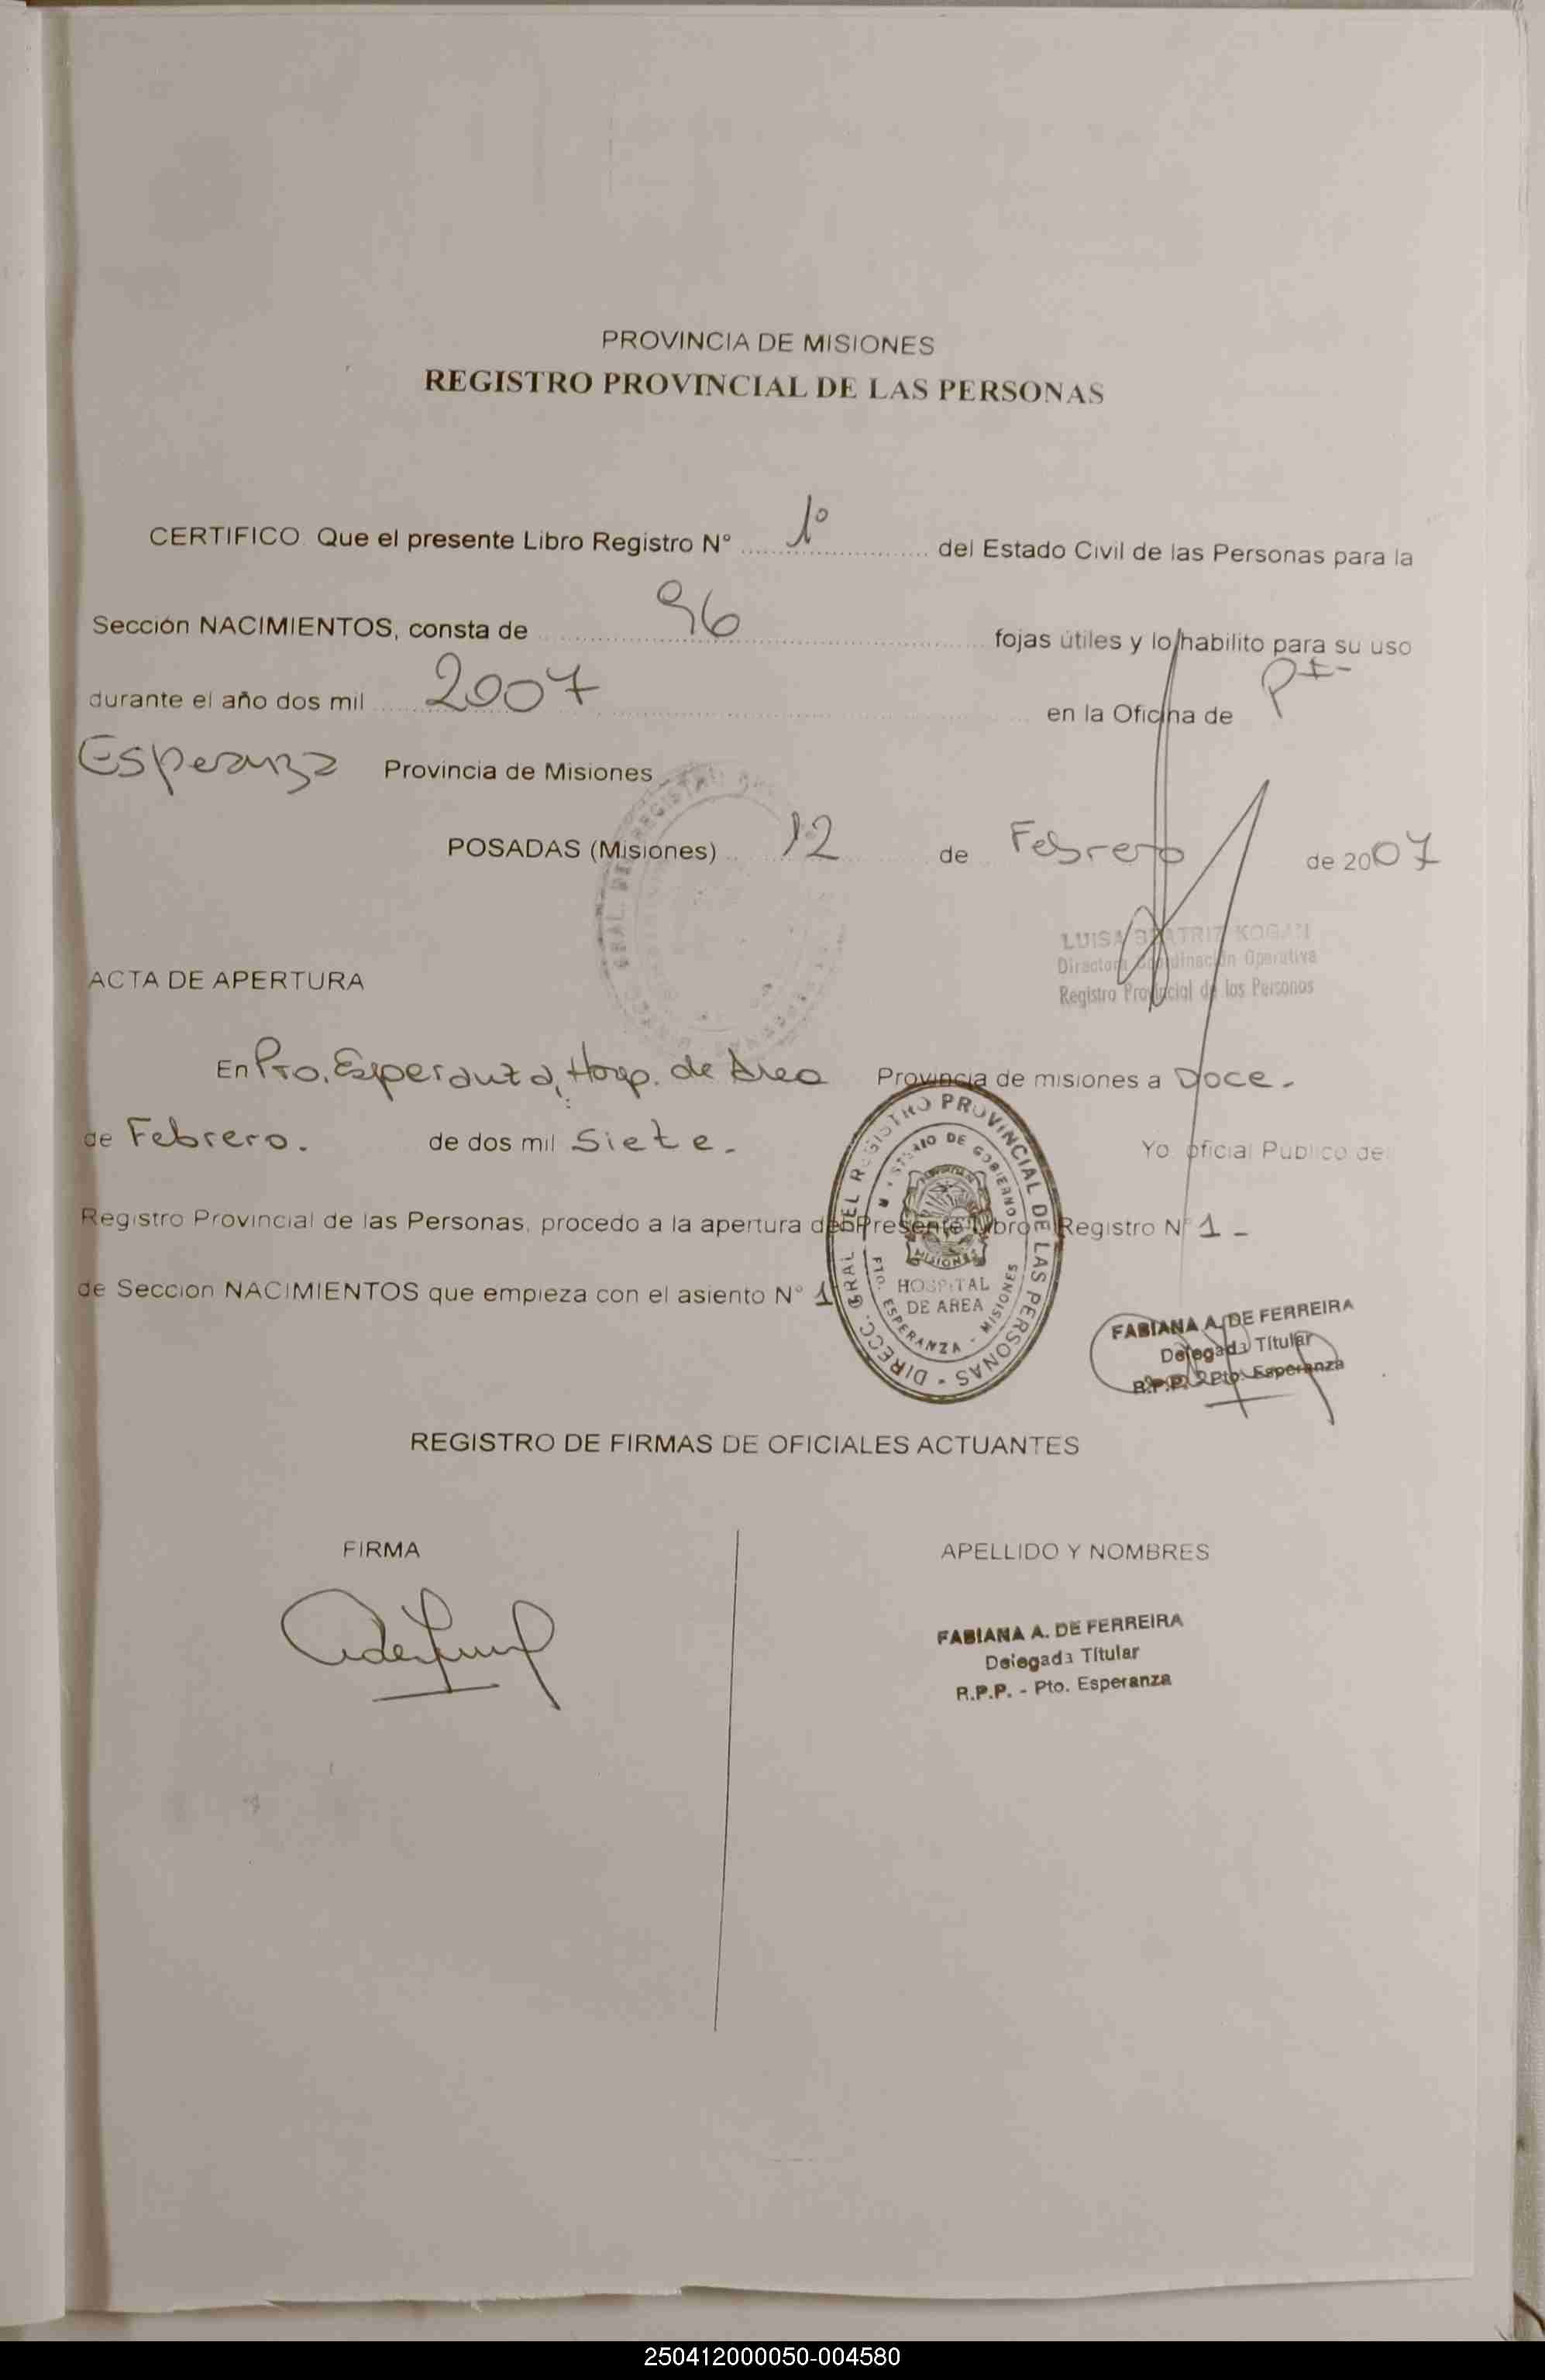 PROVINCIA DE MISIONES
REGISTRO PROVINCIAL DE LAS PERSONAS
CERTIFICO. Que el presente Libro Registro N° 1° del Estado Civil de las Personas para la
Sección NACIMIENTOS, consta de 96 fojas útiles y lo habilito para su uso
durante el año dos mil 2007 en la Oficina de Pto
Esperanza Provincia de Misiones
POSADAS (Misiones) 12 de Febrero de 2007
LUISA BEATRIZ KOGAN
Directora Coordinación Operativa
Registro Provincial de las Personas
ACTA DE APERTURA
En Pto. Esperanza, Hosp. de Area Provincia de misiones a Doce.-
de Febrero. de dos mil Siete.-
Yo oficial Publico del
Registro Provincial de las Personas, procedo a la apertura del Presente Libro Registro N° 1 -
de Seccion NACIMIENTOS que empieza con el asiento N° 1
DIRECC. GRAL. DEL REGISTRO PROVINCIAL DE LAS PERSONAS
MINISTERIO DE GOBIERNO
MISIONES
HOSPITAL
DE AREA
PTO. ESPERANZA - MISIONES
FABIANA A. DE FERREIRA
Delegada Titular
R.P.P. - Pto. Esperanza
REGISTRO DE FIRMAS DE OFICIALES ACTUANTES
FIRMA APELLIDO Y NOMBRES
FABIANA A. DE FERREIRA
Delegada Titular
R.P.P. - Pto. Esperanza
250412000050-004580